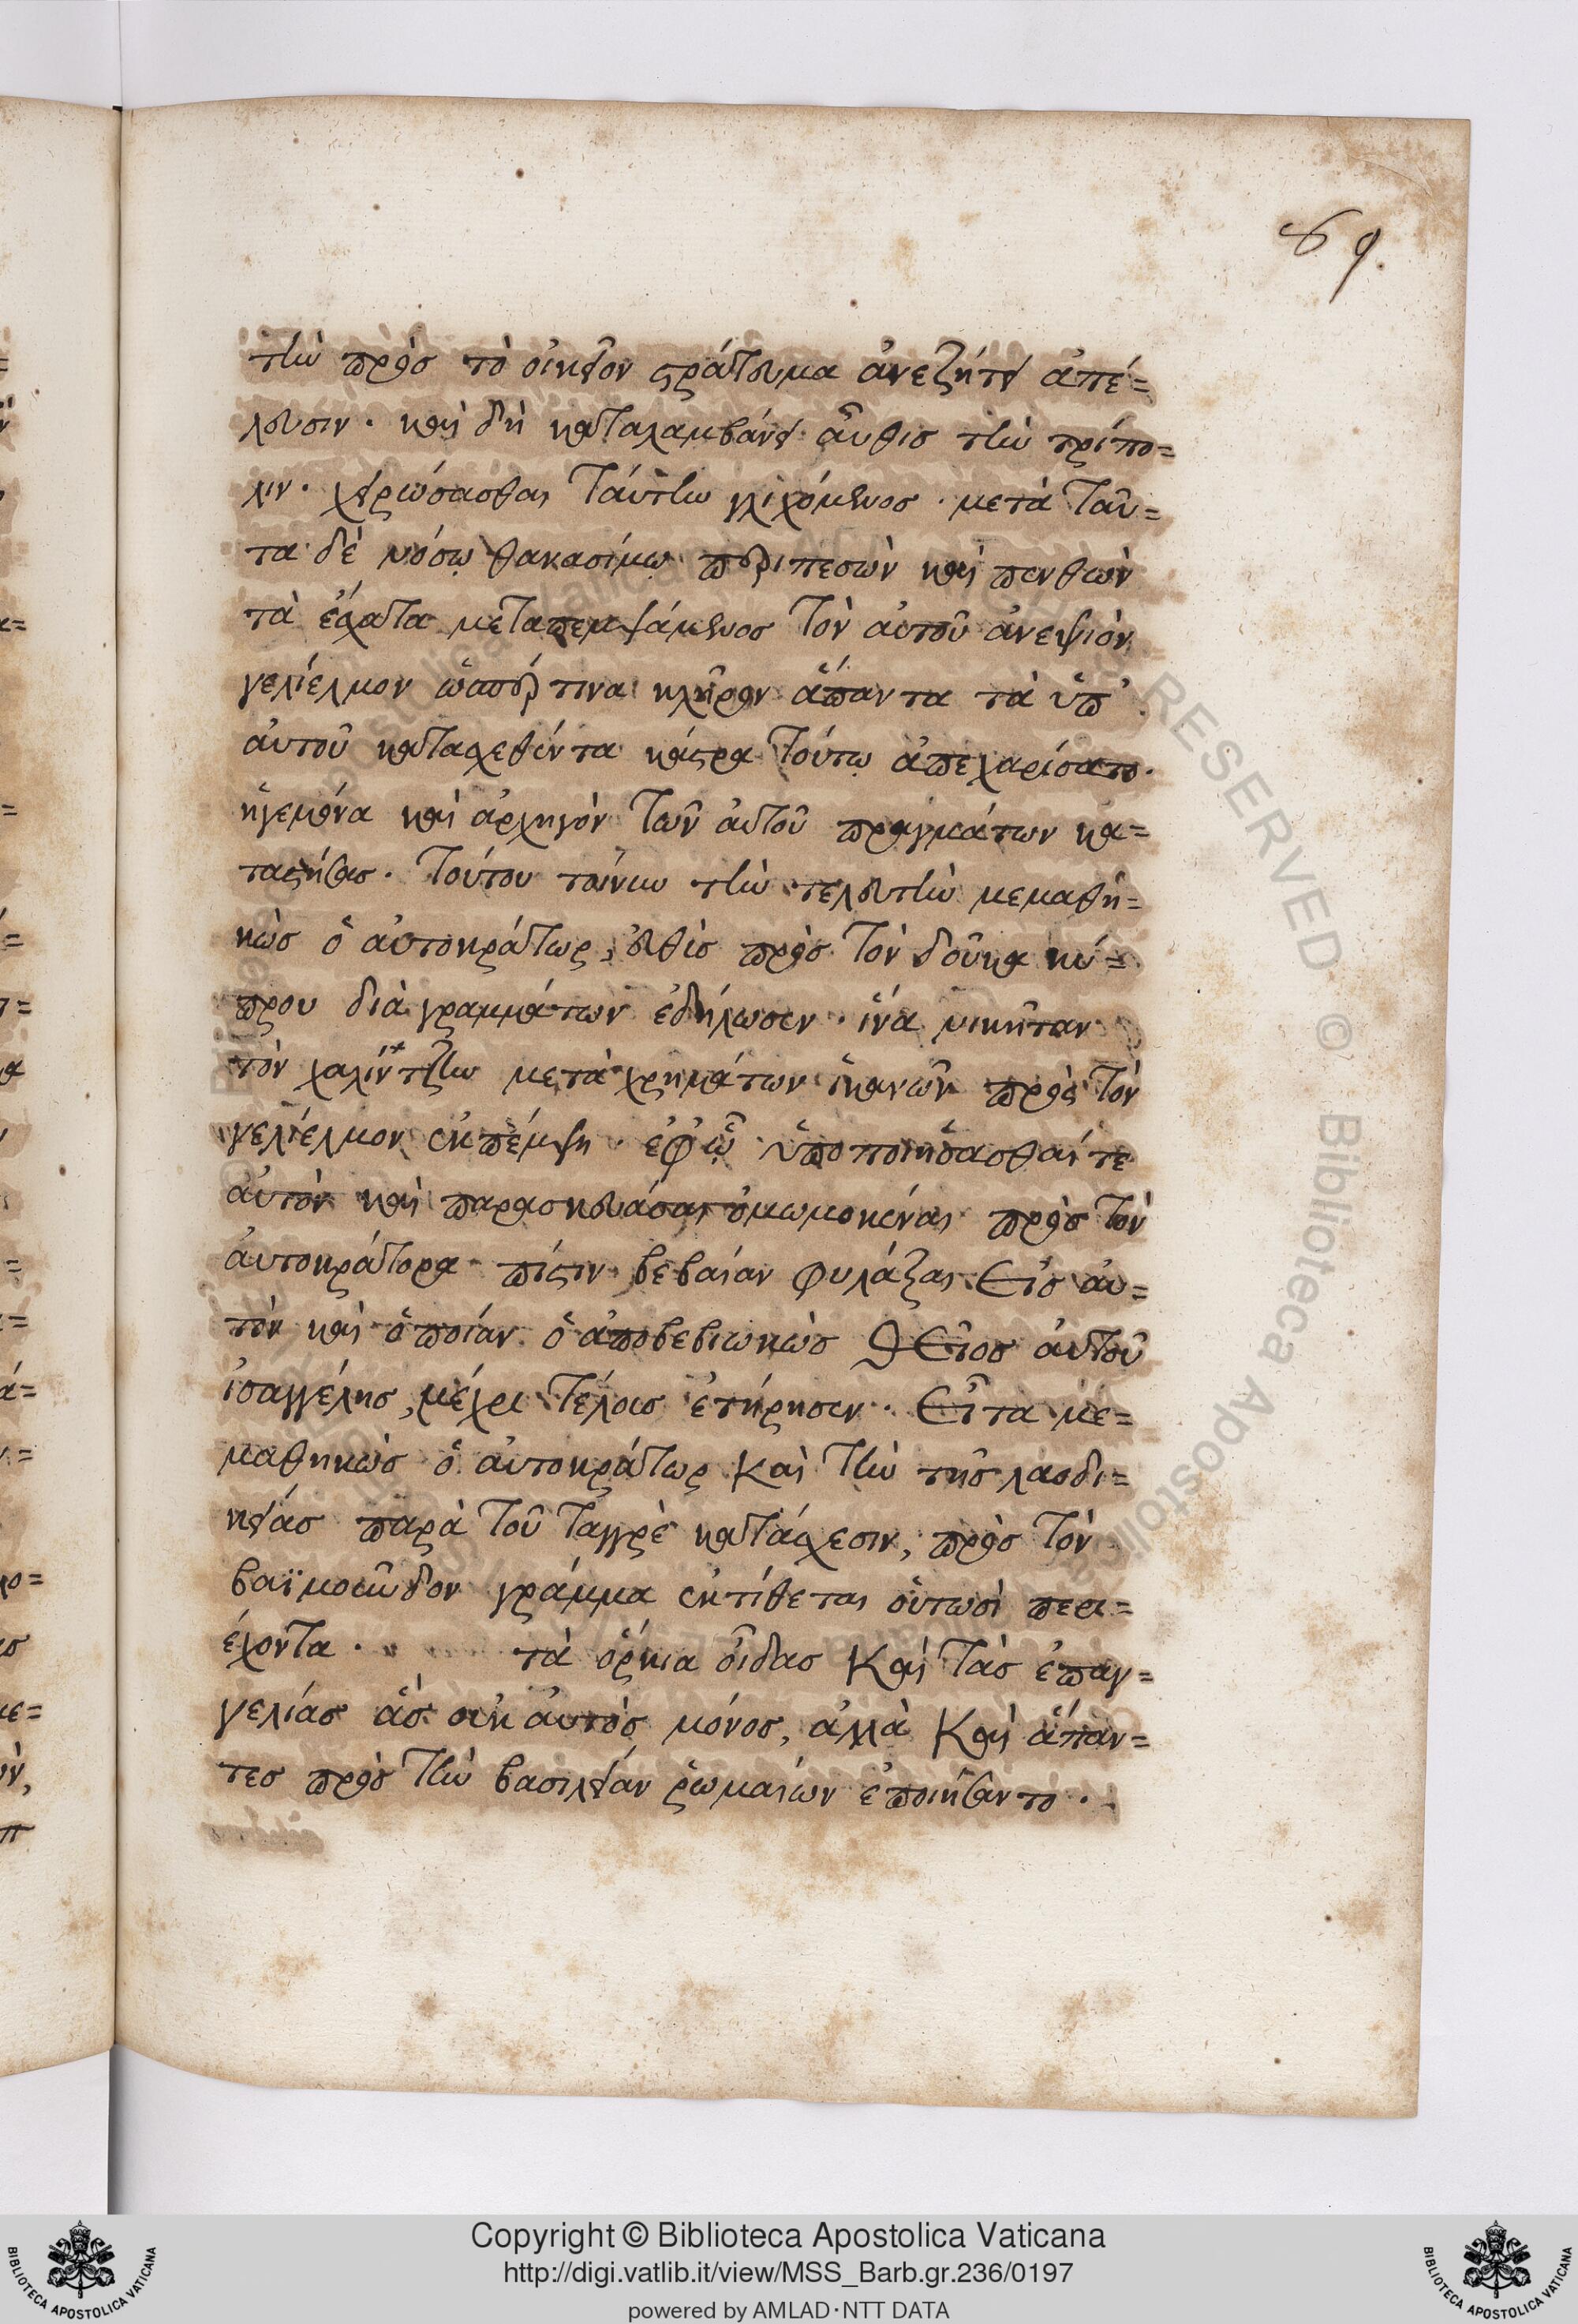 89.
τὴν πρὸς τὸ οἰκεῖον στράτευμα ἀνεζήτει ἀπέ=
λευσιν· καὶ δὴ καταλαμβάνει αὖθις τὴν τρίπο=
λιν· χειρώσασθαι ταύτην γλιχόμενος· μετὰ ταῦ=
τα δὲ νόσω θανασίμω περιπεσὼν καὶ πενθων
τὰ ἔσχατα μεταπεμψάμενος τὸν αὐτοῦ ἀνεψιὸν
γελίελμον ὥσπερ τινα κλῆρον ἅπαντα τὰ ὑπ'
αὐτοῦ κατασχεθέντα κάστρα τούτω ἀπεχαρίσατο·
ἡγεμόνα καὶ ἀρχηγὸν τῶν αὐτοῦ πραγμάτων κα=
ταστήσας· τούτου τοίνυν τὴν τελευτὴν μεμαθη=
κὼς ὁ αὐτοκράτωρ, εὐθὺς πρὸς τὸν δοῦκα κύ=
πρου διὰ γραμμάτων ἐδήλωσεν· ἵνα νικήταν
τὸν χαλίντζην μετὰ χρημάτων ἱκανῶν πρὸς τὸν
γελίελμον ἐκπέμψη· ἐφ' ὧ ὑποποιήσασθαί τε
αὐτὸν καὶ παρασκευάσαι ὀμωμοκέναι πρὸς τὸν
αὐτοκράτορα πίστιν βεβαίαν φυλάξαι εἰς αὐ=
τὸν καὶ ὁποίαν ὁ ἀποβεβιωκὼς θεῖος αὐτοῦ
ἰσαγγέλης, μέχρι τέλους ἐτήρησεν· εἶτα με=
μαθηκὼς ὁ αὐτοκράτωρ καὶ τὴν τῆς λαοδι=
κείας παρὰ τοῦ ταγγρὲ κατάσχεσιν, πρὸς τὸν
βαϊμοῦνδον γράμμα ἐκτίθεται οὑτωσὶ περι=
έχοντα· τὰ ὅρκια οἶδας καὶ τὰς ἐπαγ=
γελίας ἃς οὐκ αὐτὸς μόνος, ἀλλὰ καὶ ἅπαν=
τες πρὸς τὴν βασιλείαν ῥωμαίων ἐποιήσαντο·
Copyright © Biblioteca Apostolica Vaticana
http://digi.vatlib.it/view/MSS_Barb.gr.236/0197
powered by AMLAD·NTT DATA